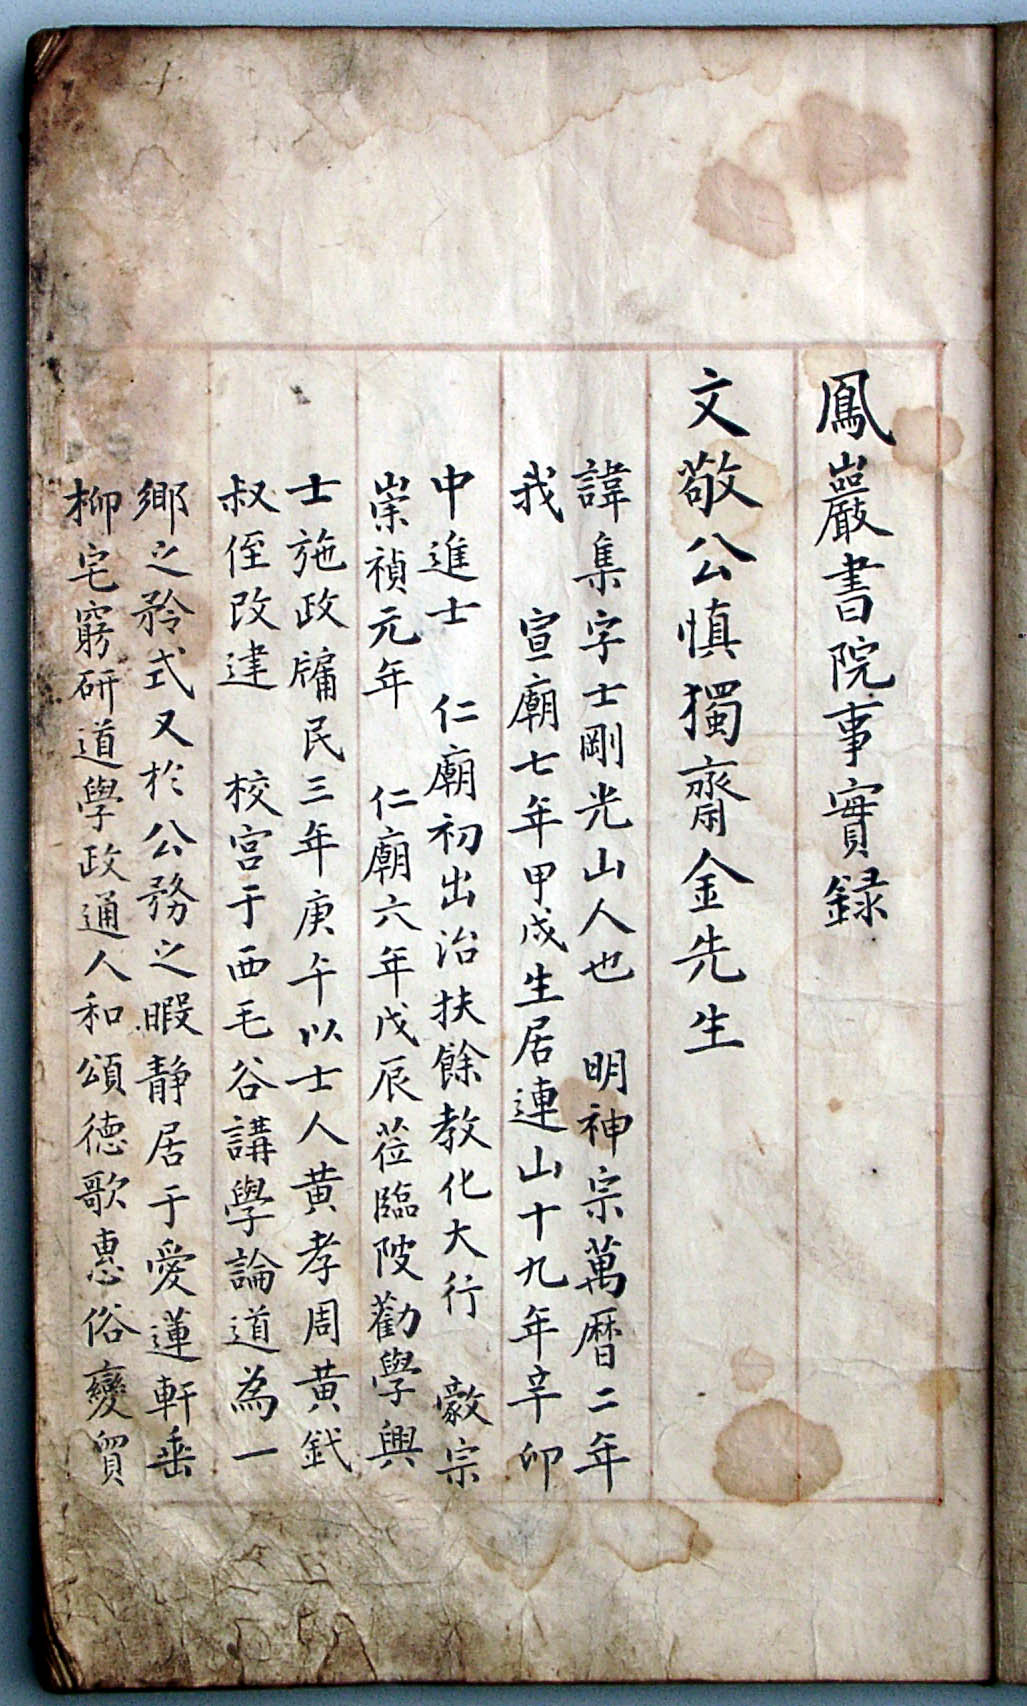 鳳巖書院事實録
文敬公慎獨齋金先生
諱集字士剛光山人也 明神宗萬曆二年
我 宣廟七年甲戌生居連山十九年辛卯
中進士 仁廟初出治扶餘教化大行 毅宗
崇禎元年 仁廟六年戊辰莅臨陂勸學興
士施政牗民三年庚午以士人黃孝周黃釴
叔侄改建 校宮于西毛谷講學論道為一
鄉之矜式又於公務之暇静居于愛蓮軒垂
柳宅窮研道學政通人和頌徳歌惠俗變貿